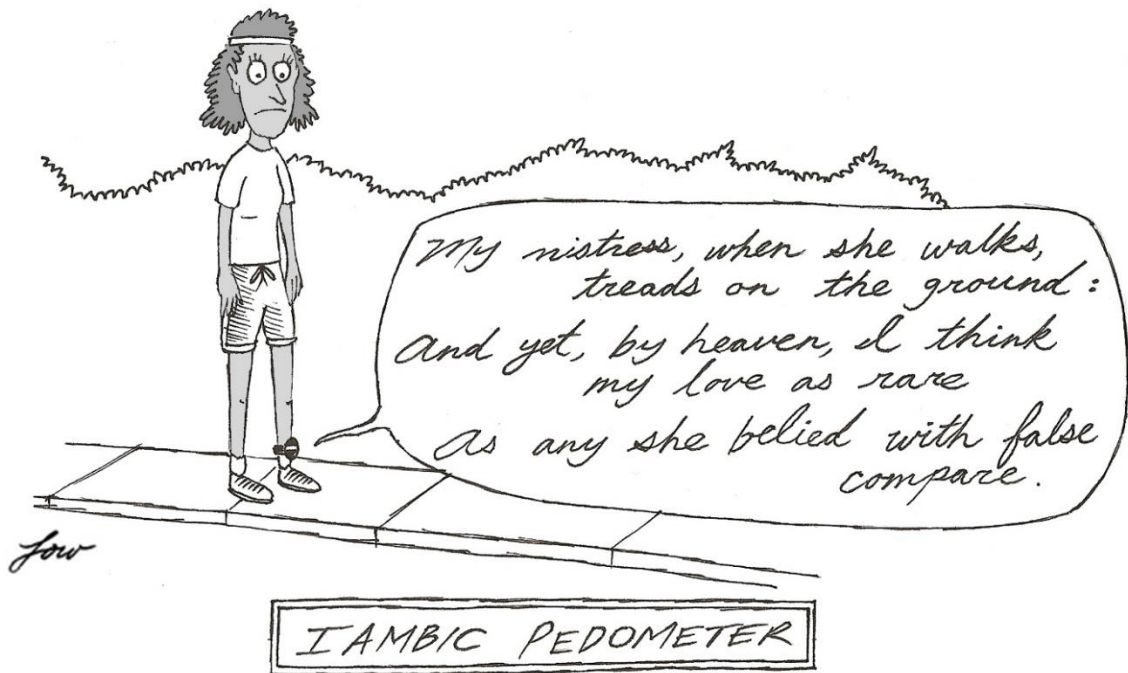 My mistress, when she walks,
treads on the ground:
And yet, by heaven, I think
my love as rare
As any she belied with false
compare.
Low
IAMBIC PEDOMETER